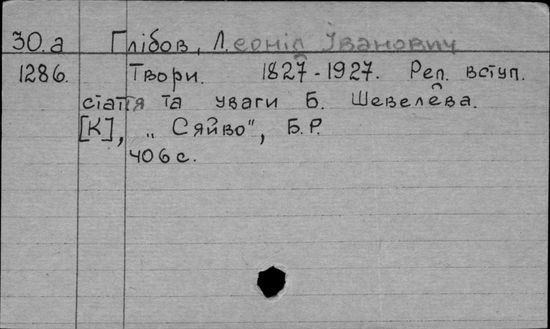 30.а Глібов, Леонід Іванович
1286. Твори. 1827-1927. Реп. вступ.
стаття та уваги Б. Шевелева.
[К], „Сяйво", Б.Р.
406 с.